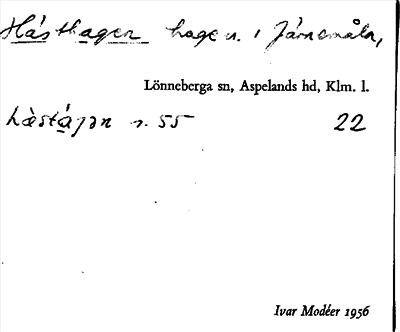 Hästhagen hage n. i Järnemåla,
Lönneberga sn, Aspelands hd, Klm. l.
hàstáɡən s. 55 22
Ivar Modéer 1956